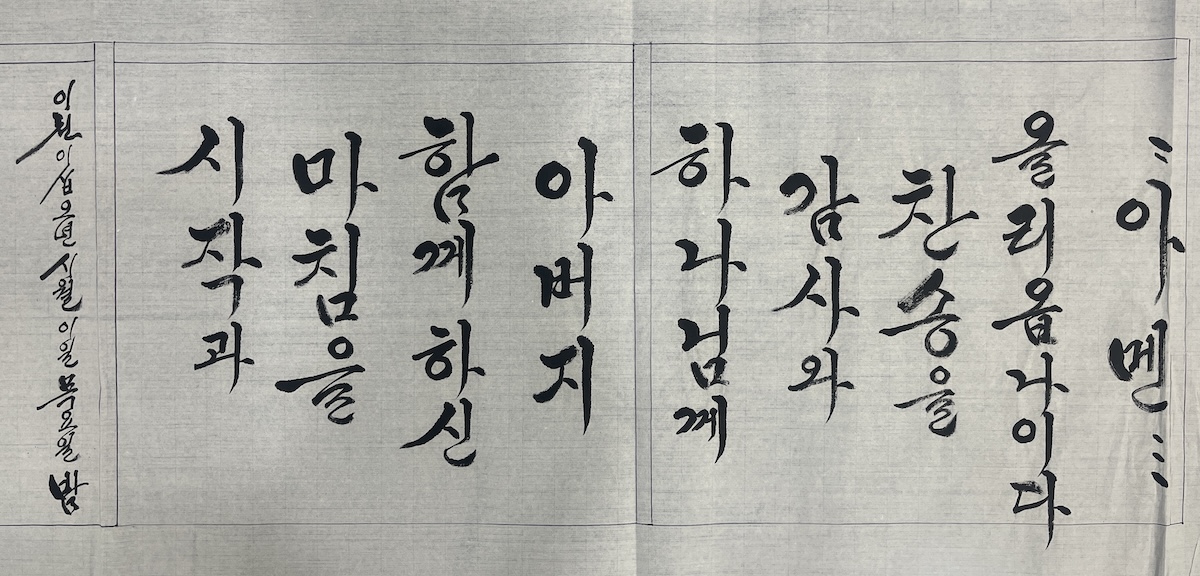 이천이십오년 시월 이일 목요일 밤
시작과
마침을
함께하신
아버지
하나님께
감사와
찬송을
올리옵나이다
아멘